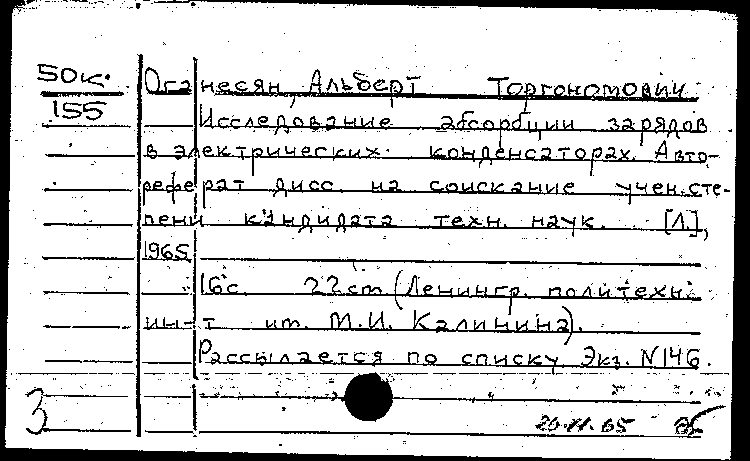 50к. Оганесян, Альберт Торгономович
155 Исследование абсорбции зарядов
в электрических конденсаторах. Авто-
реферат дисс. на соискание учен. сте-
пени кандидата техн. наук. [Л.],
1965
16с. 22cm (Ленингр. политехн.
ин-т им. М.И. Калинина).
Рассылается по списку. Экз. N146.
3
26.11.65